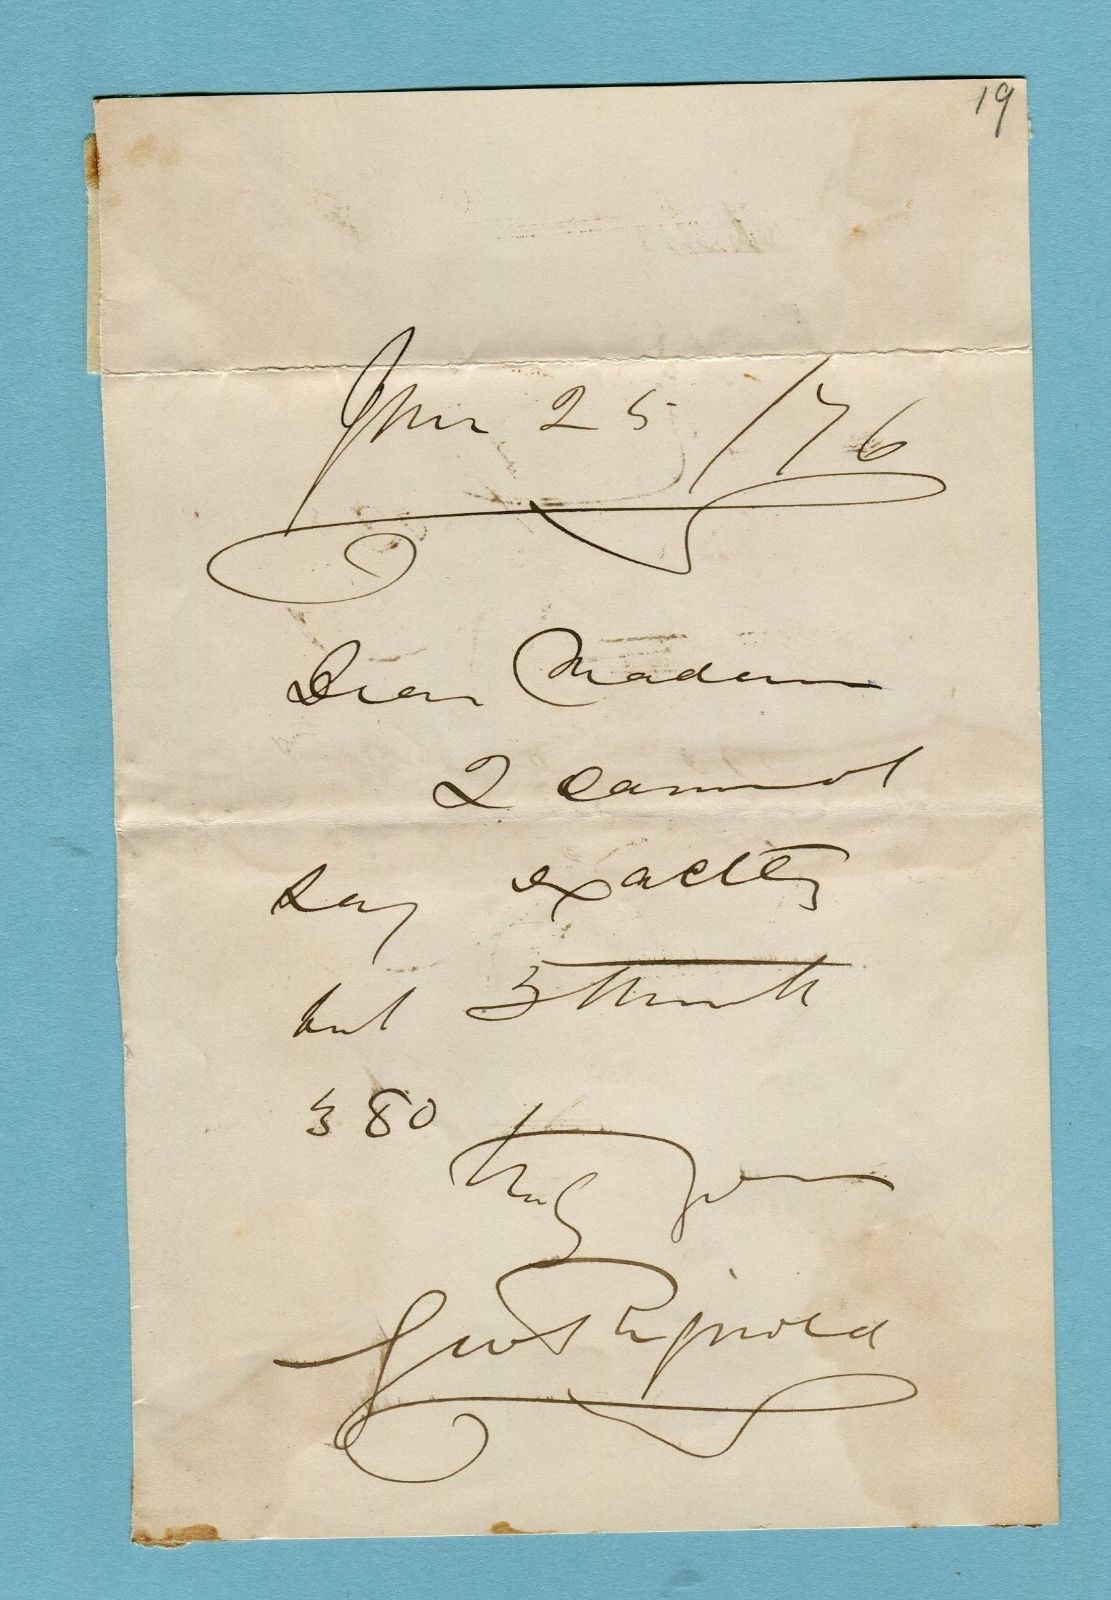 19
25 /76
Dear Madam
I cannot
say exactly
but I think
380
Truly yours
Geo Rignold